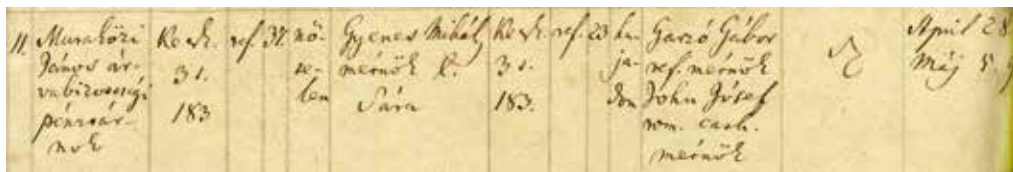 11.
Muraközi
János ár-
vabizomsági
pénztár-
nok
Kecsk.
3 t.
183
ref.
37.
nő-
te-
len
Gyenes Mihály
mérnök l.
Sára
Kecsk.
3 t.
183.
ref.
23
ha-
ja-
don
Garzó Gábor
ref. mérnök
John József
rom. cath.
mérnök
April 28.
Máj 5.